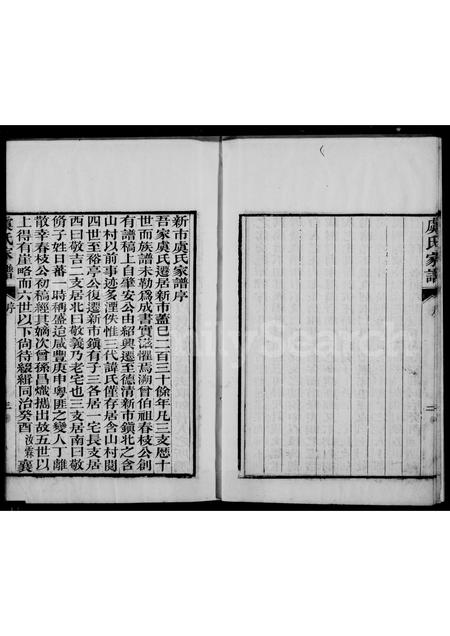 新市虞氏家譜序
吾家虞氏遷居新市蓋巳二百三十餘年凡三支歴十
世而族譜未勒爲成書實滋懼焉溯曾伯祖春枝公創
有譜稿上自肇安公由紹興遷至德清新市鎭北之含
山村以前事迹多湮佚惟三代諱氏僅存居含山村閱
四世至裕亭公復遷新市鎭有子三各居一宅長支居
西曰敬吉二支居北曰敬義乃老宅也三支居南曰敬
脩子姓日蕃一時稱盛迨咸豐庚申粵匪之變人丁離
散幸春枝公初稿經其嫡次曾孫昌熾攜出故五世以
上得有崖略而六世以下尙待綴緝同治癸酉汝霖襄
虞氏家譜
序
三
虞氏家譜
序
二
FamilySearch